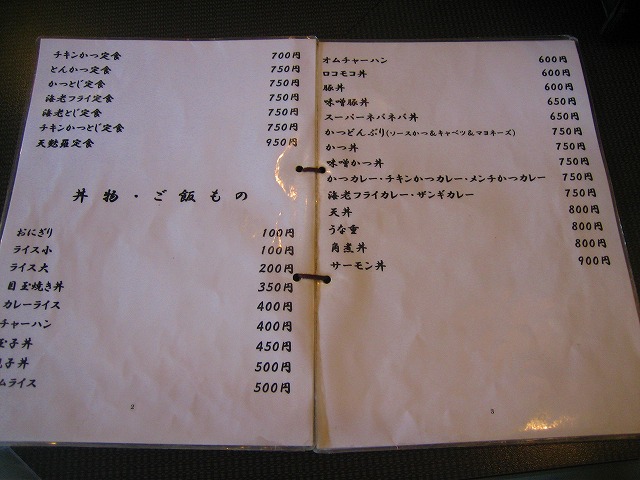 チキンかつ定食 700円
とんかつ定食 750円
かつとじ定食 750円
海老フライ定食 750円
海老とじ定食 750円
チキンかつとじ定食 750円
天麩羅定食 950円
丼物・ご飯もの
おにぎり 100円
ライス小 100円
ライス大 200円
目玉焼き丼 350円
カレーライス 400円
チャーハン 400円
玉子丼 450円
子丼 500円
ムライス 500円
2
オムチャーハン 600円
ロコモコ丼 600円
豚丼 600円
味噌豚丼 650円
スーパーネバネバ丼 650円
かつどんぶり(ソースかつ&キャベツ&マヨネーズ) 750円
かつ丼 750円
味噌かつ丼 750円
かつカレー・チキンかつカレー・メンチかつカレー 750円
海老フライカレー・ザンギカレー 750円
天丼 800円
うな重 800円
角煮丼 800円
サーモン丼 900円
3